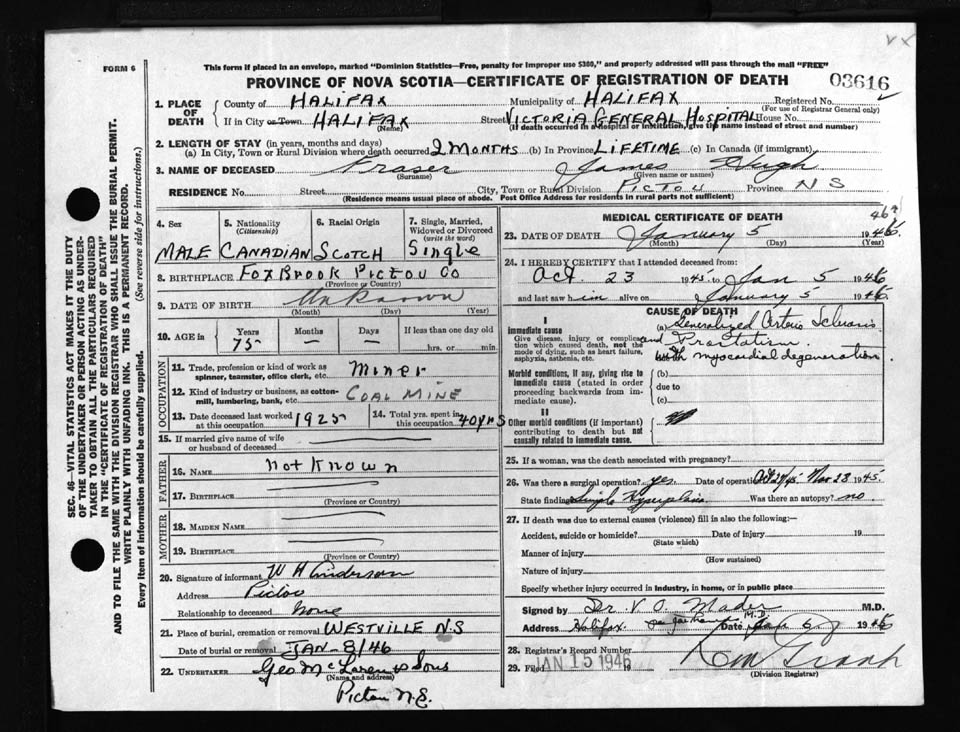 FORM 6
This form if placed in an envelope, marked "Dominion Statistics—Free, penalty for improper use $300," and properly addressed will pass through the mail "FREE"
PROVINCE OF NOVA SCOTIA—CERTIFICATE OF REGISTRATION OF DEATH
03616
1. PLACE OF DEATH County of HALIFAX Municipality of HALIFAX Registered No.
(For use of Registrar General only)
If in City or Town HALIFAX Street VICTORIA GENERAL HOSPITAL House No.
(Name) (If death occurred in a hospital or institution, give the name instead of street and number)
2. LENGTH OF STAY (in years, months and days)
(a) In City, Town or Rural Division where death occurred 2 MONTHS (b) In Province LIFETIME (c) In Canada (if immigrant)
3. NAME OF DECEASED Fraser James Hugh
(Surname) (Given name or names)
RESIDENCE No. Street City, Town or Rural Division PICTOU Province N S
(Residence means usual place of abode. Post Office Address for residents in rural parts not sufficient)
4. Sex 5. Nationality (Citizenship) 6. Racial Origin 7. Single, Married, Widowed or Divorced (write the word)
MALE CANADIAN SCOTCH Single
8. BIRTHPLACE FoxBrook Pictou Co
(Province or Country)
9. DATE OF BIRTH Unknown
(Month) (Day) (Year)
10. AGE in Years Months Days If less than one day old
75 — — hrs. or min.
OCCUPATION
11. Trade, profession or kind of work as spinner, teamster, office clerk, etc. Miner
12. Kind of industry or business, as cotton-mill, lumbering, bank, etc. COAL MINE
13. Date deceased last worked at this occupation 1925 14. Total yrs. spent in this occupation 40 yrs
15. If married give name of wife or husband of deceased
FATHER
16. NAME not known
17. BIRTHPLACE
(Province or Country)
MOTHER
18. MAIDEN NAME
19. BIRTHPLACE
(Province or Country)
20. Signature of informant W H Anderson
Address Pictou
Relationship to deceased None
21. Place of burial, cremation or removal WESTVILLE N.S
Date of burial or removal JAN-8/46
22. UNDERTAKER Geo McLaren & Sons
(Name and address)
Pictou N.S.
MEDICAL CERTIFICATE OF DEATH
23. DATE OF DEATH January 5 1946
(Month) (Day) (Year)
24. I HEREBY CERTIFY that I attended deceased from:
Oct. 23 1945 to Jan 5 1946
and last saw him alive on January 5 1946
CAUSE OF DEATH
I
Immediate cause
Give disease, injury or complication which caused death, not the mode of dying, such as heart failure, asphyxia, asthenia, etc.
(a) Generalized Arterio Sclerosis
and Prostatism
with myocardial degeneration.
Morbid conditions, if any, giving rise to immediate cause (stated in order proceeding backwards from immediate cause).
(b)
due to
(c)
II
Other morbid conditions (if important) contributing to death but not causally related to immediate cause.
25. If a woman, was the death associated with pregnancy?
26. Was there a surgical operation? yes. Date of operation Nov 23 1945
State findings Simple Hyperplasia Was there an autopsy? no.
27. If death was due to external causes (violence) fill in also the following:—
Accident, suicide or homicide? Date of injury 19
(State which)
Manner of injury
(How sustained)
Nature of injury
Specify whether injury occurred in industry, in home, or in public place
Signed by Dr. V. O. Mader M.D.
Address Halifax Date Jan 6 1946
28. Registrar's Record Number
29. Filed JAN 15 1946
(Division Registrar)
SEC. 46—VITAL STATISTICS ACT MAKES IT THE DUTY OF THE UNDERTAKER OR PERSON ACTING AS UNDERTAKER TO OBTAIN ALL THE PARTICULARS REQUIRED IN THE "CERTIFICATE OF REGISTRATION OF DEATH" AND TO FILE THE SAME WITH THE DIVISION REGISTRAR WHO SHALL ISSUE THE BURIAL PERMIT.
WRITE PLAINLY WITH UNFADING INK. THIS IS A PERMANENT RECORD.
Every item of Information should be carefully supplied. (See reverse side for instructions.)